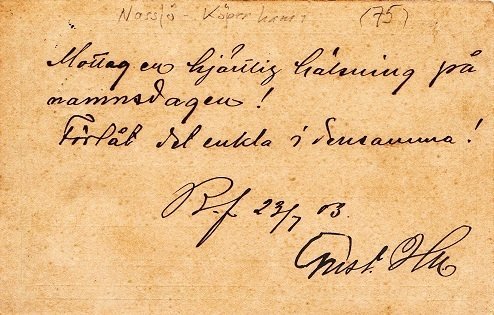 Nässjö - Köpenhamn (75)
Mottag en hjärtlig hälsning på
namnsdagen!
Förlåt det enkla i densamma!
R-f 23/7 03.
Gust.